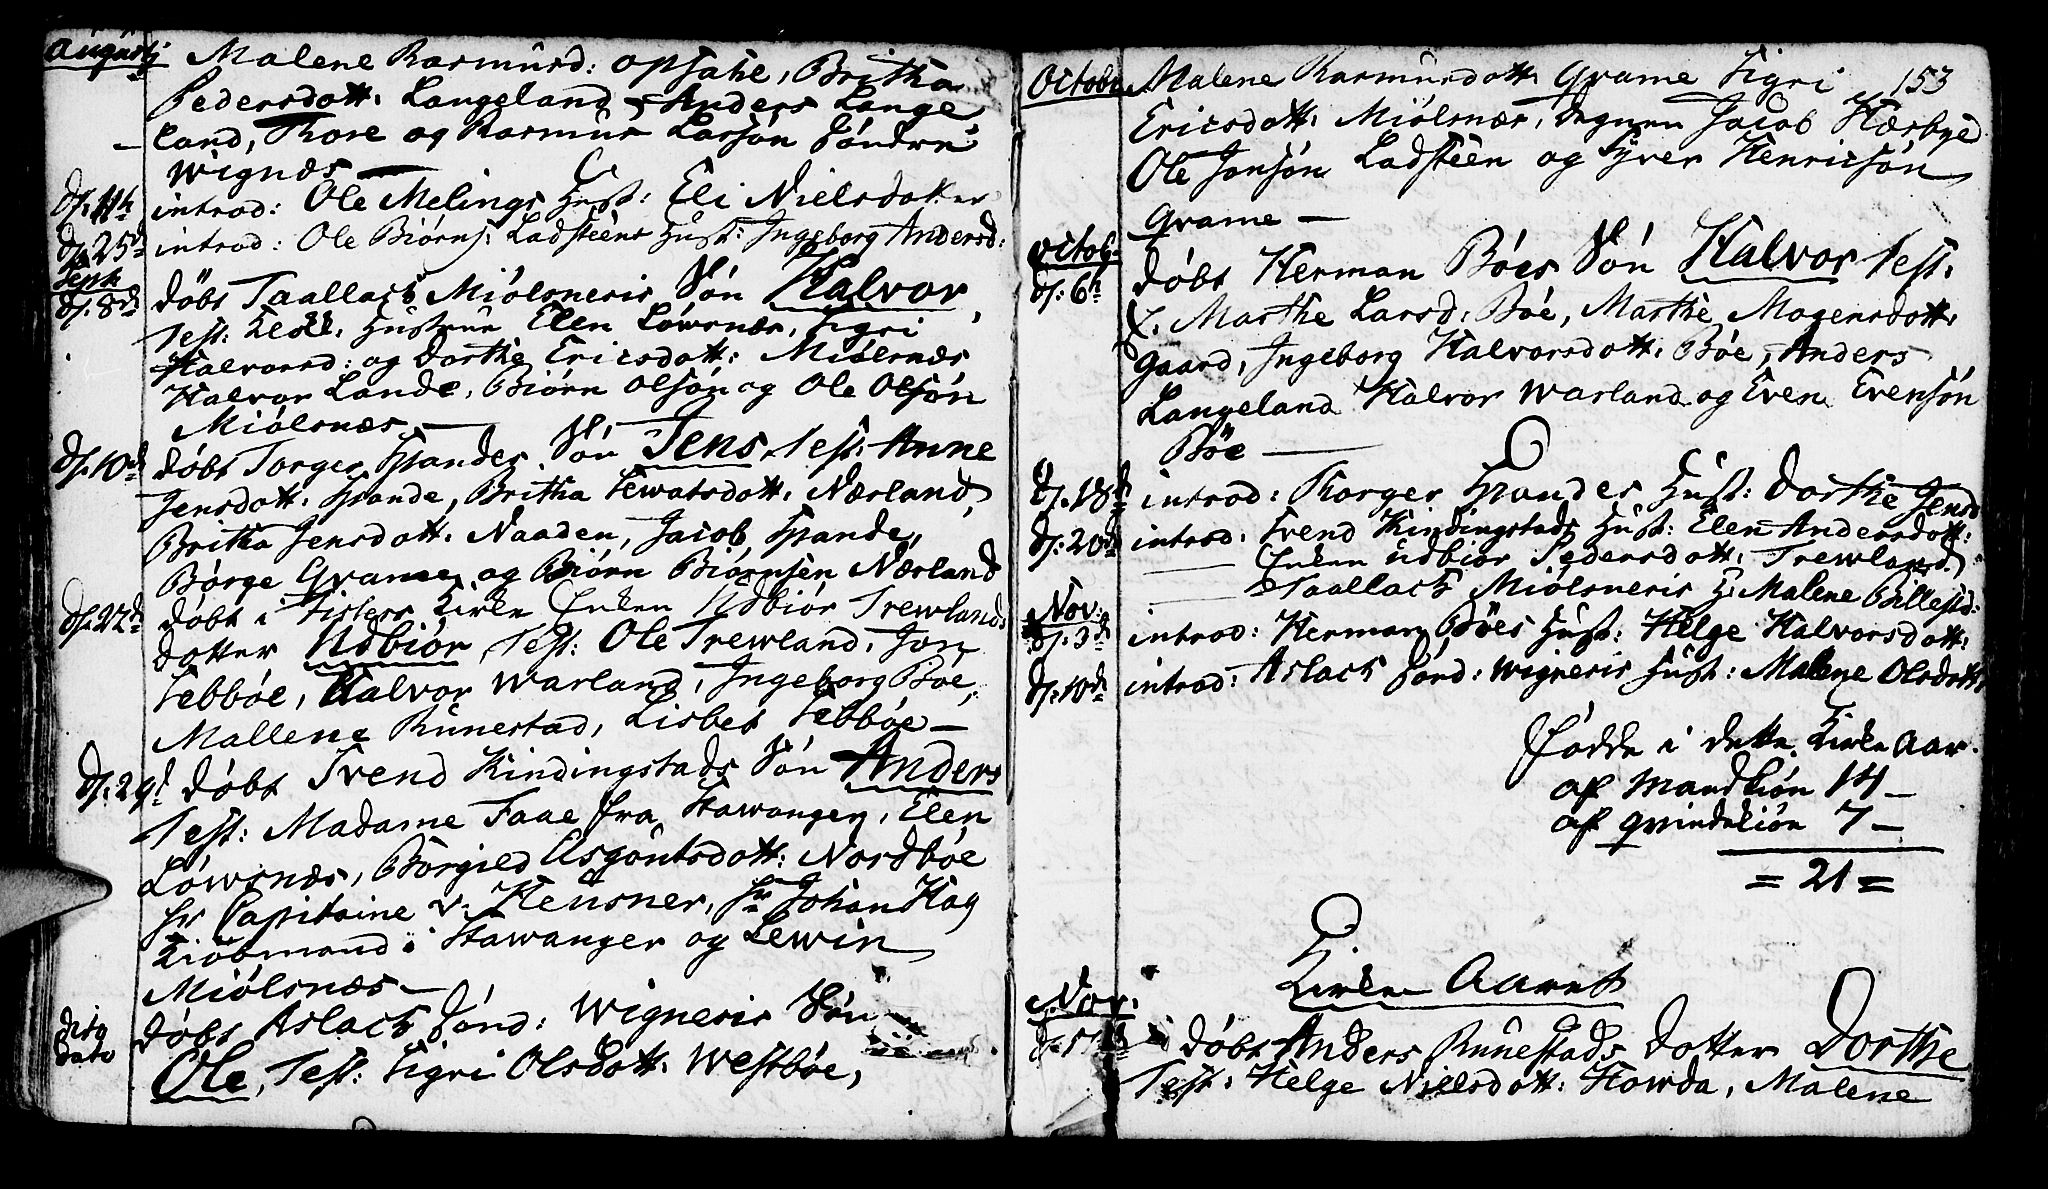 Augustj
Malene Rasmusd: Opsahl, Britha
Pedersdott: Langeland, Anders Lange
land, Thore og Rasmus Larsøn Søndre
Wignæs —
d. 11te introd: Ole Melings Hust: Eli Nielsdatter
d. 25d introd: Ole Biørns: Ladsteens Hust: Ingeborg Andersd:
Sept.
d. 8de døbt Taallach Miølsneris Søn Halvor,
Test: Hustrue Elen Løwsnæs, Sigri
Halvorsd: og Dorthe Ericsdott: Miølsnæs
Halvor Lande, Biørn Olsøn og Ole Olsøn
Miølsnæs —
d. 10de døbt Torger Spandes Søn Jens Test: Anne
Jensdott: Spande, Britha Sewatsdott: Nærland,
Britha Jensdott: Naaden, Jacob Spande,
Børge Qvame og Biørn Biørnsen Nærland
d. 22de døbt i Sisters Kirke Enken Udbiør Trewlands
dotter Udbiør Test: Ole Trewland, Jon
Sebbøe, Halvor Warland, Ingeborg Bøe,
Mallene Runestad, Lisbet Sebbøe —
d. 29d døbt Svend Kindingstads Søn Anders
Test: Madame Faae fra Stawanger, Elen
Løwsnæs, Borgild Asgoutsdott: Nordbøe
hr Capitaine v: Heusner, hr Johan Hag
Kiøbmand i Stawanger og Lewin
Miølsnæs —
dito dato døbt Aslach Sønd: Wigneris Søn
Ole, Test: Sigri Olsdott: Westbøe,
153
Octobr Malene Rasmusdott: Qvame Sigri
Ericsdott: Miølsnæs, Degnen Jacob Hæsbye
Ole Jonsøn Ladsteen og Syver Henricsøn
Qvame —
Octob.
d: 6te døbt Herman Bøes Søn Halvor Test:
Marthe Larsd: Bøe, Marthe Mogensdott:
Gaard, Ingeborg Halvorsdott: Bøe, Anders
Langeland Halvor Warland og Even Evensøn
Bøe —
d. 18de introd: Torger Spandes Hust: Dorthe Jensd
d: 20de introd: Svend Kindingstads Hust: Elen Andersdott:
— Enken Udbiør Pedersdott: Trewland
— Taallach Miølsneris H: Malene Billestd:
Nov:
d: 3de introd: Herman Bøes Hust: Helge Halvorsdott:
d. 10de introd: Aslach Sønd: Wigneris Hust: Malene Olsdott:
Fødde i dette Kirke Aar.
af Mandkiøn 14 —
af qvindekiøn 7 —
= 21 =
Kirke Aaret
Nov.
d. 17de døbt Anders Runestads Dotter Dorthe
Test: Helge Nielsdott: Howda, Malene